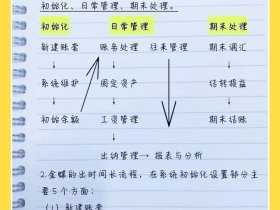 初始化、日常管理、期末处理。
初始化 日常管理 期末处理
新建账套 账务处理 往来管理 期末调汇
系统维护 固定资产 结转损益
初始余额 工资管理 期末结账
出纳管理→报表与分析
2.金蝶的出时间长流程,在系统初始化设置部分主
要5个方面:
(1)新建账套